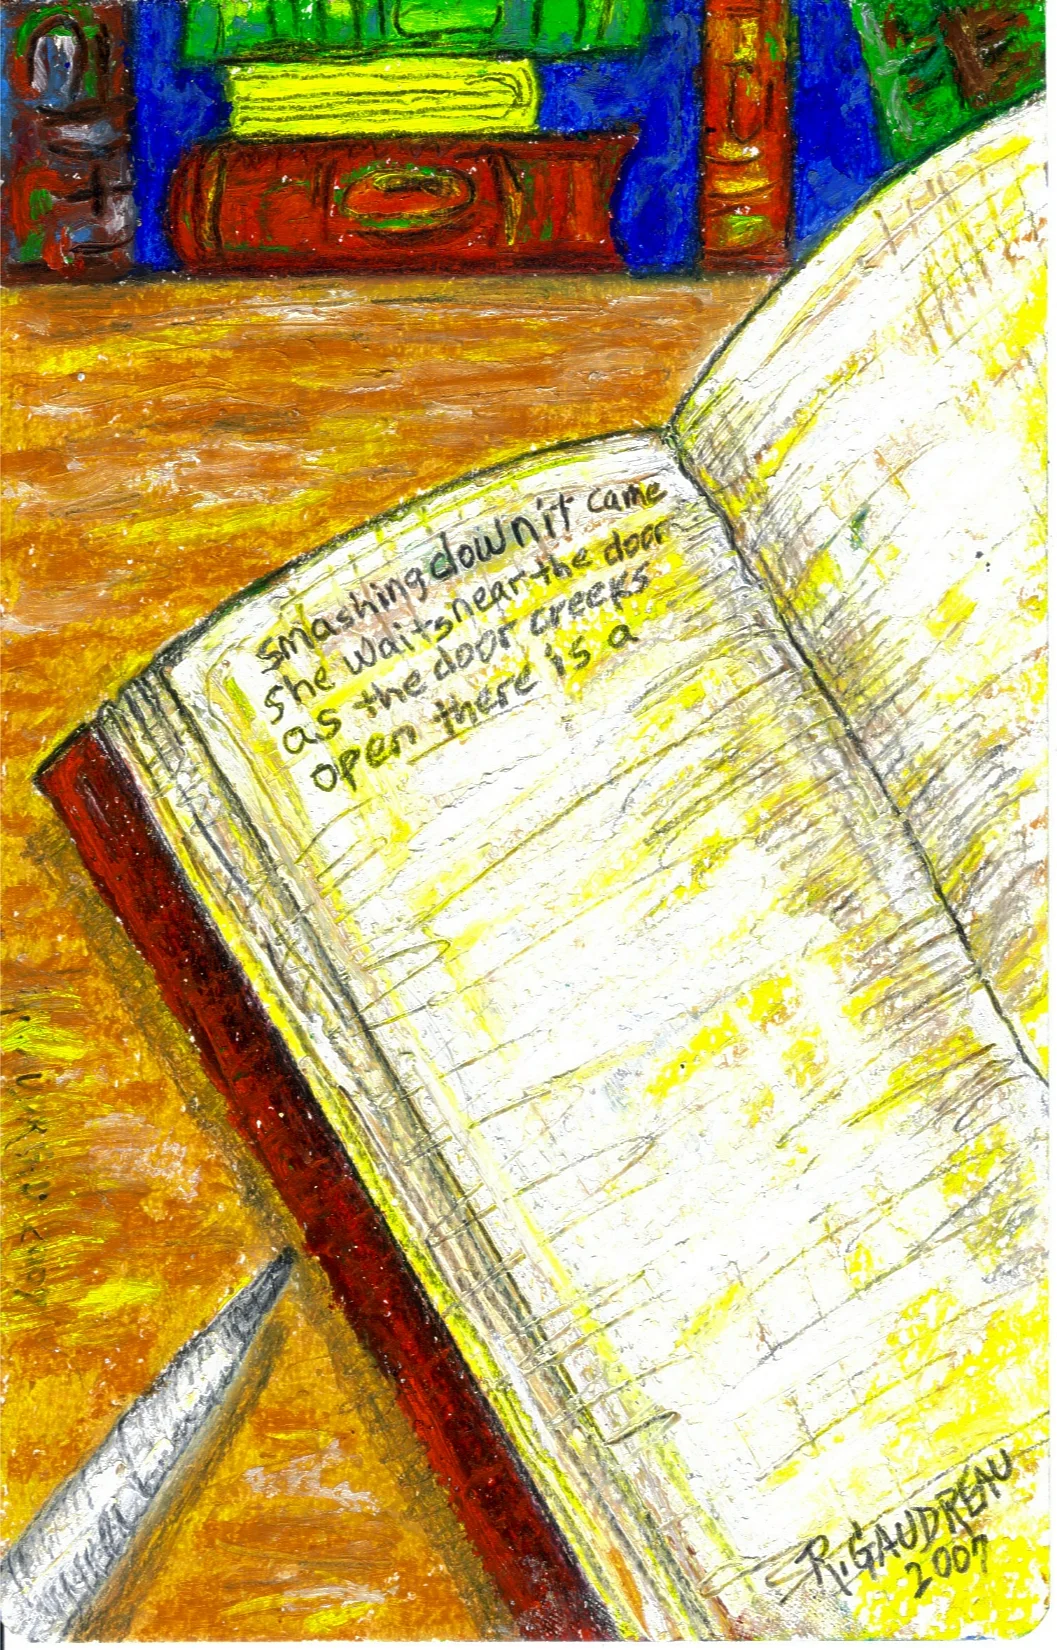 smashing down it came
she waits near the door
as the door creeks
open there is a
R. GAUDREAU
2007